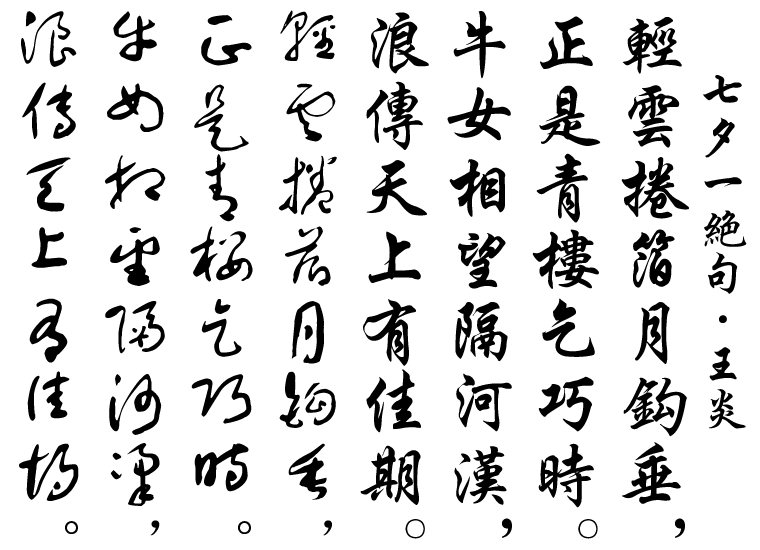 七夕一絕句・王炎
輕雲捲箔月鈎垂,
正是青樓乞巧時。
牛女相望隔河漢,
浪傳天上有佳期。
輕雲捲箔月鈎垂,
正是青樓乞巧時。
牛女相望隔河漢,
浪傳天上有佳期。